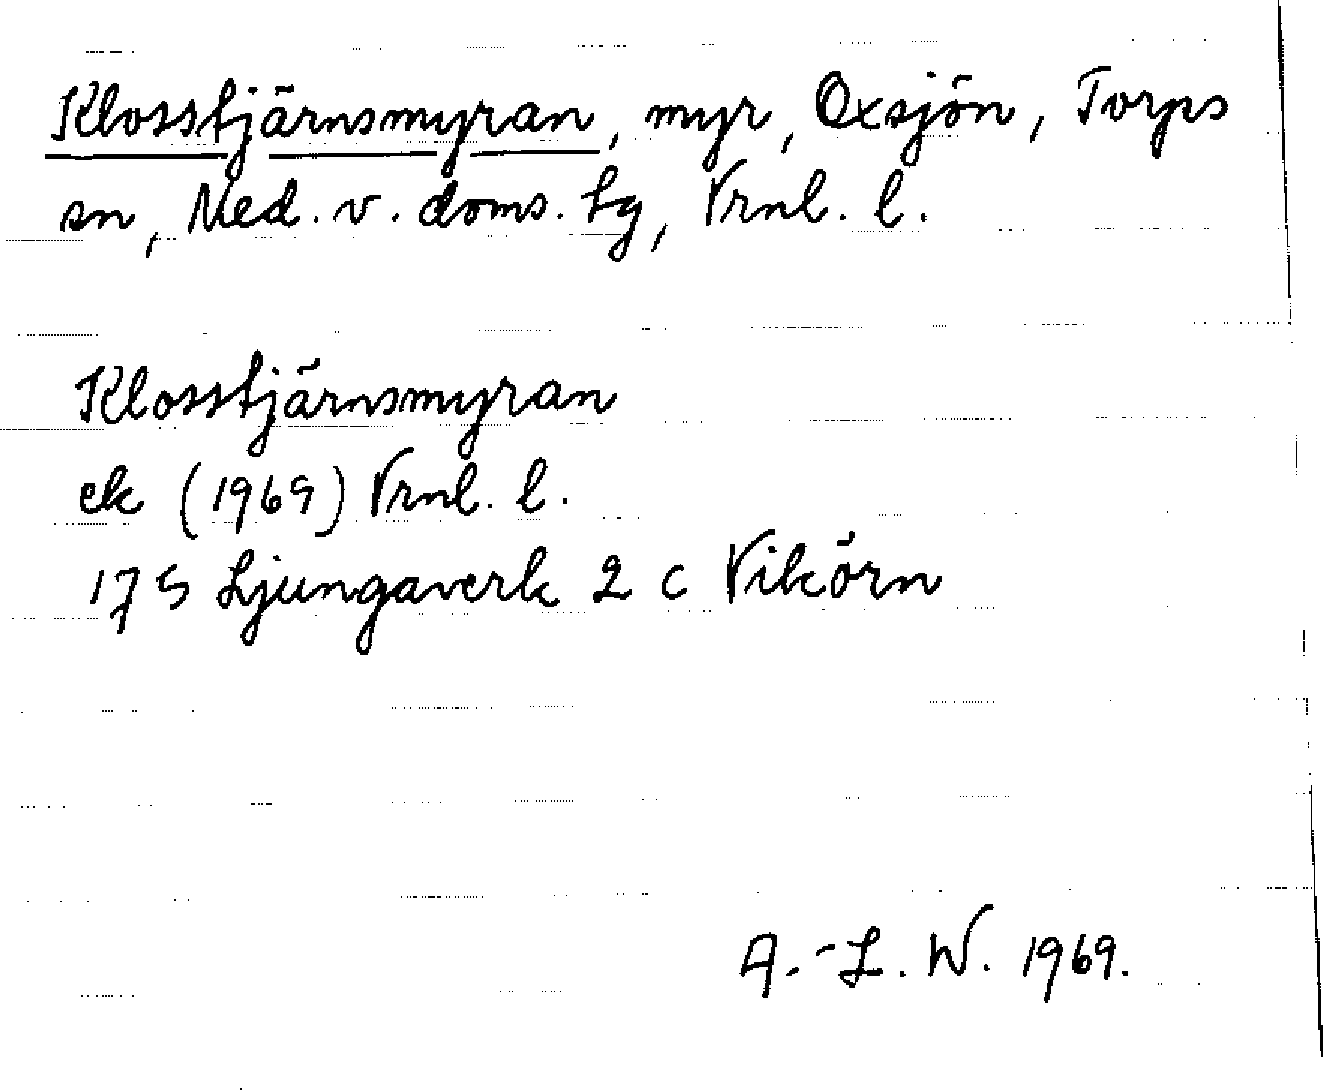 Klosstjärnsmyran, myr, Oxsjön, Torps
sn, Med. v. doms. tg, Vrnl. l.
Klosstjärnsmyran
ek (1969) Vrnl. l.
17 G Ljungaverk 2 c Vikörn
A.-L. W. 1969.